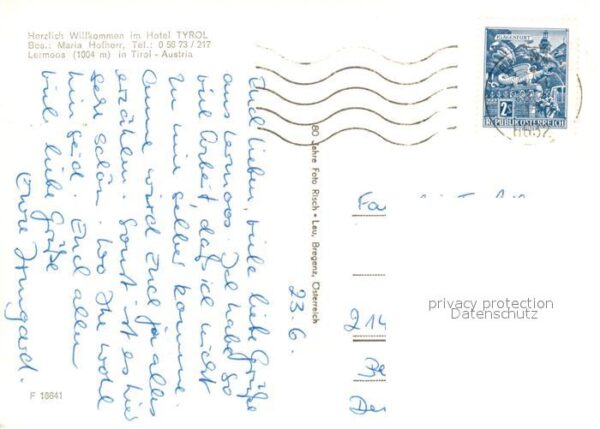 Herzlich Willkommen im Hotel TYROL
Bes.: Maria Hofherr, Tel.: 0 56 73 / 217
Lermoos (1004 m) in Tirol - Austria
KLAGENFURT
2S
REPUBLIK ÖSTERREICH
80 Jahre Foto Risch • Lau, Bregenz, Österreich
23.6.
Euch Lieben, viele liebe Grüße
aus Lermoos. Ich habe so
viel Arbeit, daß ich nicht
zu mir selber komme
Anne wird Euch ja alles
erzählen. Sonst ist es hier
sehr schön. Wo Ihr wohl
hin seid. Euch allen
viele liebe Grüße
Eure Irmgard.
Fa
214
De
privacy protection
Datenschutz
F 18641